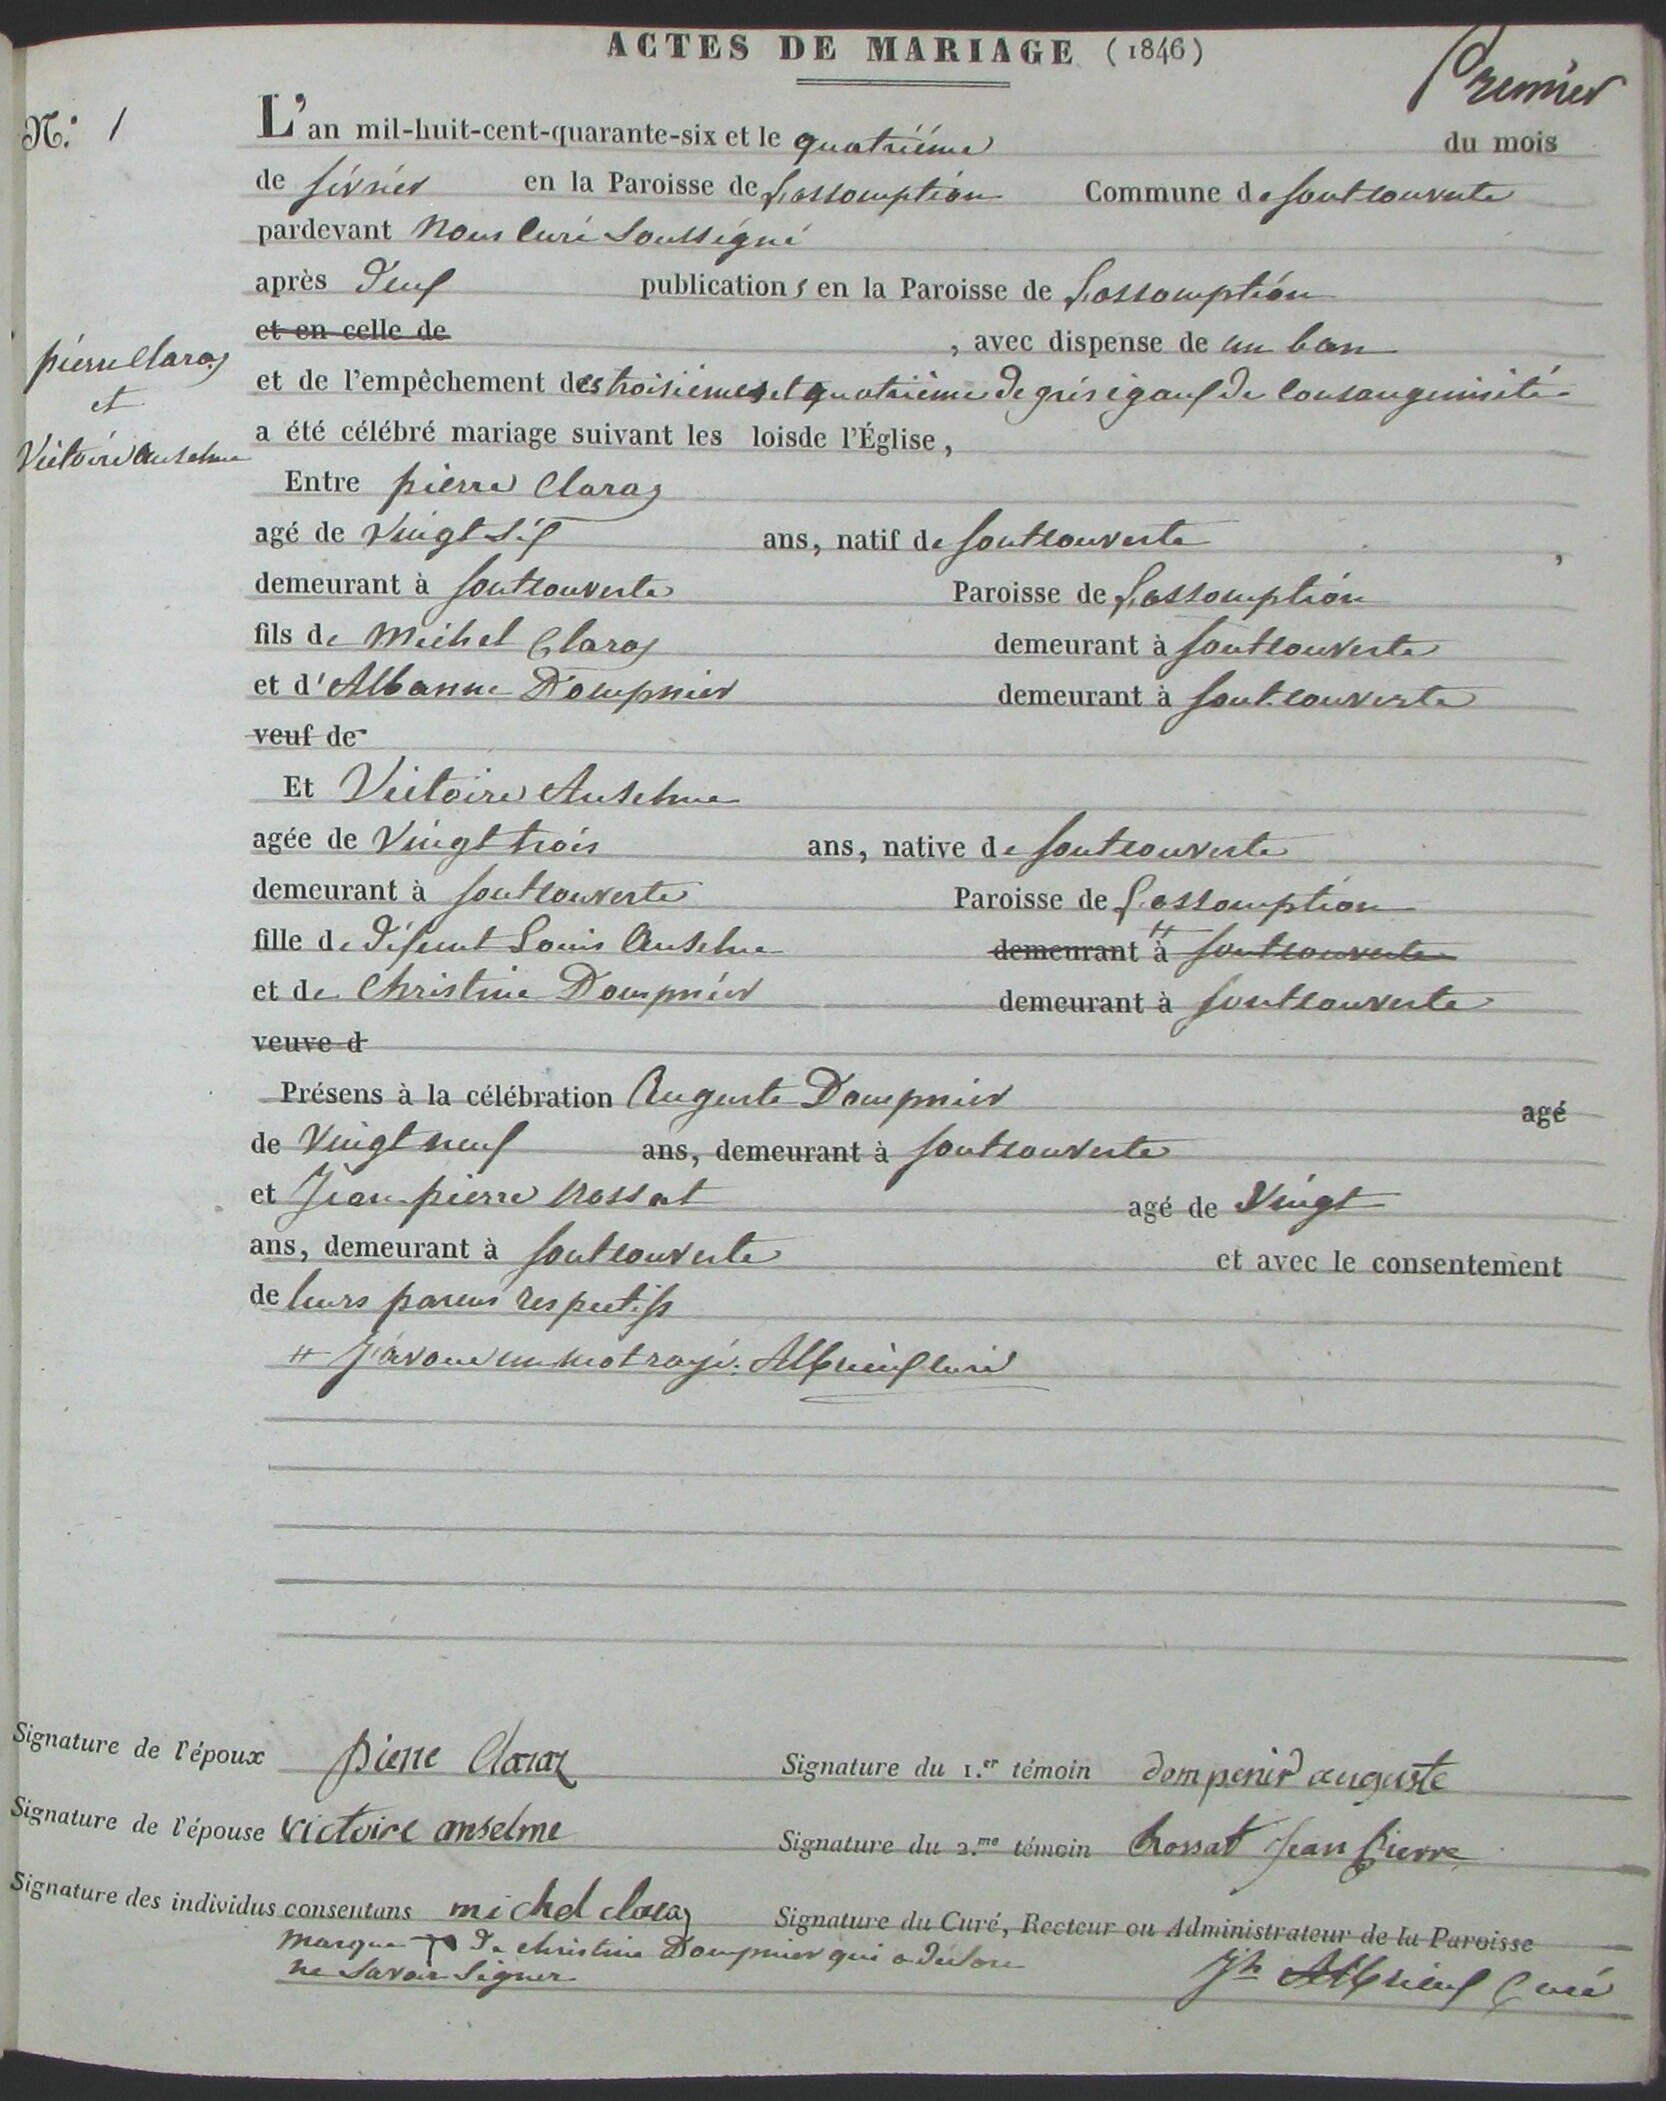 ACTES DE MARIAGE (1846)
Premier
N.° 1
L'an mil-huit-cent-quarante-six et le quatrième du mois
de février en la Paroisse de L'assomption Commune de fontcouverte
pardevant Nous Curé Soussigné
après deux publications en la Paroisse de L'assomption
et en celle de , avec dispense de un ban
pierre Claraz
et
Victoire Anselme
et de l'empêchement des troisièmes et quatrième degrés egaux de consanguinité
a été célébré mariage suivant les loisde l'Église,
Entre pierre Claraz
agé de vingt six ans, natif de fontcouverte ,
demeurant à fontcouverte Paroisse de L'assomption
fils de Michel Claraz demeurant à fontcouverte
et d'Albanne Dompnier demeurant à fontcouverte
veuf de
Et Victoire Anselme
agée de Vingt trois ans, native de fontcouverte
demeurant à fontcouverte Paroisse de L'assomption
fille de défunt Louis Anselme demeurant à # fontcouverte
et de Christine Dompnier demeurant à fontcouverte
veuve d
Présens à la célébration Auguste Dompnier agé
de Vingt neuf ans, demeurant à fontcouverte
et Jean pierre Rossat agé de Vingt
ans, demeurant à fontcouverte et avec le consentement
de leurs parens respectifs
# J'avoue un mot rayé. Albrieux curé
Signature de l'époux pierre Claraz
Signature du 1.er témoin dompenir auguste
Signature de l'épouse victoire anselme
Signature du 2.me témoin Rossat Jean Pierre
Signature des individus consentans michel claraz
Signature du Curé, Recteur ou Administrateur de la Paroisse
Marque de christine Dompnier qui a déclaré
ne savoir signer
Jh Albrieux Curé